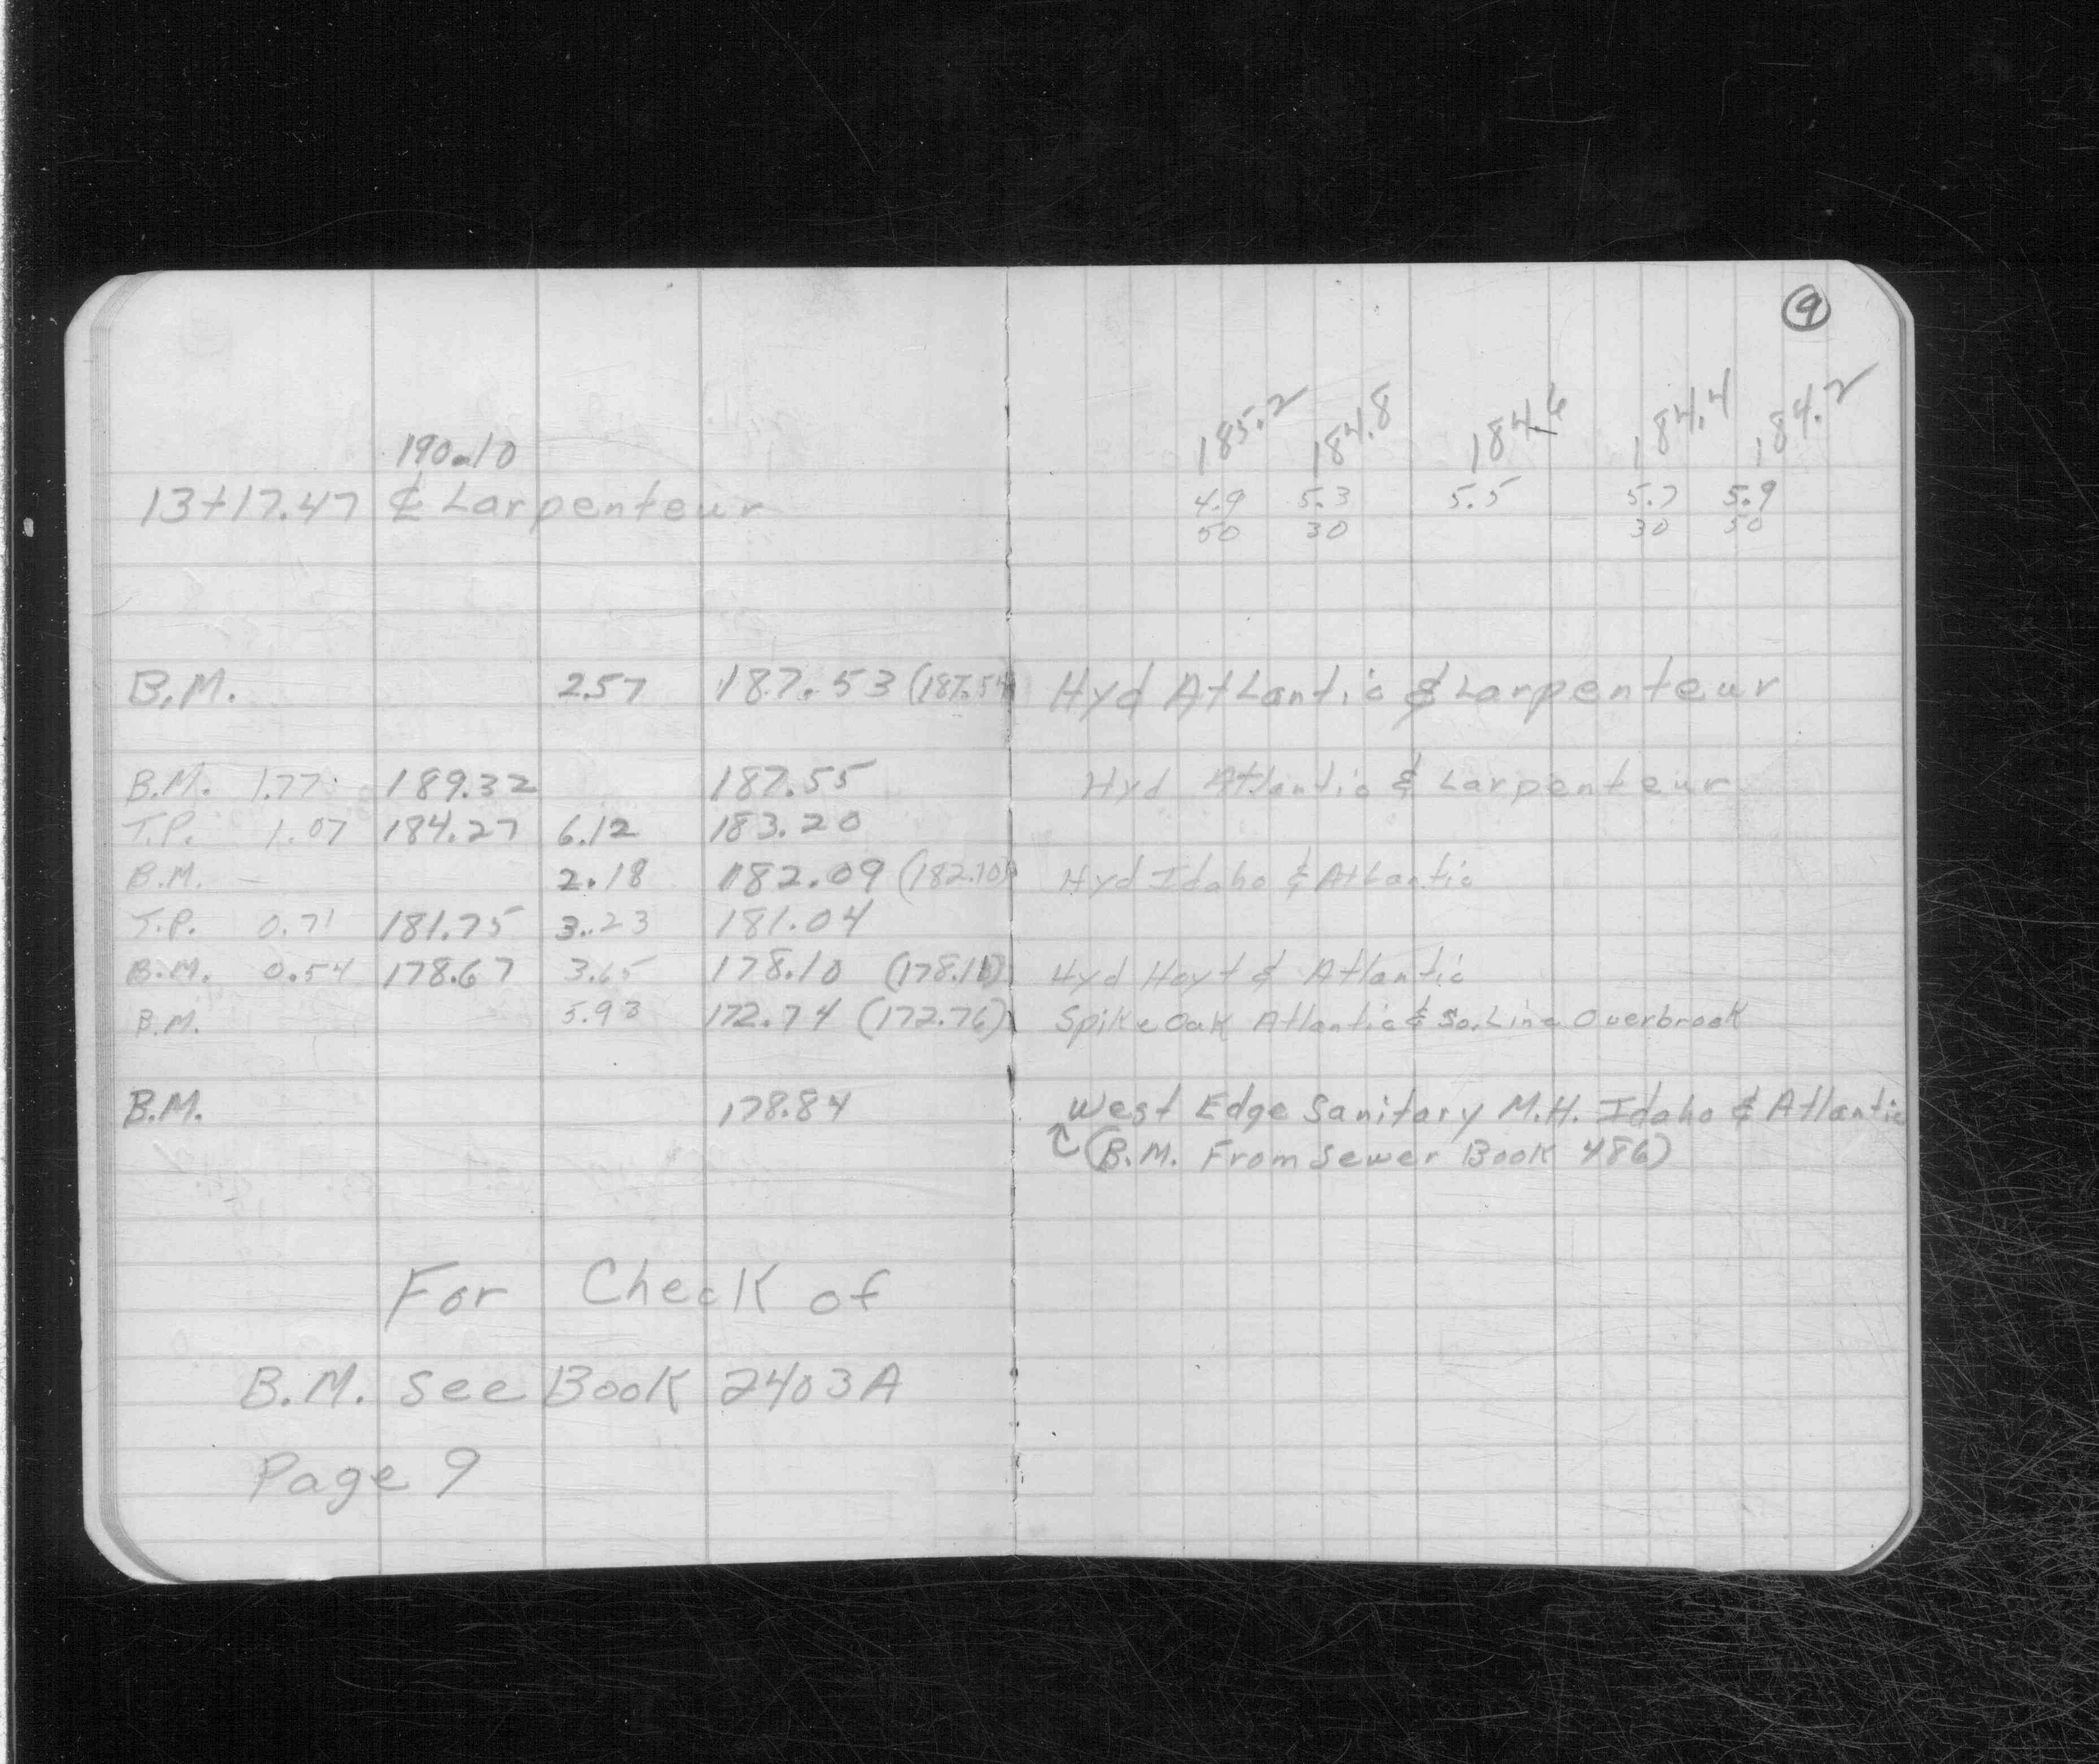 9
185.2 184.8 184.6 184.4 184.2
190.10
13+17.47 ℄ Larpenteur 4.9 5.3 5.5 5.7 5.9
50 30 30 50
B.M. 2.57 187.53 (187.54) Hyd Atlantic & Larpenteur
B.M. 1.77 189.32 187.55 Hyd Atlantic & Larpenteur
T.P. 1.07 184.27 6.12 183.20
B.M. — 2.18 182.09 (182.10) Hyd Idaho & Atlantic
T.P. 0.71 181.75 3.23 181.04
B.M. 0.54 178.67 3.65 178.10 Hyd Hoyt & Atlantic
B.M. 5.93 172.74 (172.76) Spike Oak Atlantic & So. Line Overbrook
B.M. 178.84 West Edge Sanitary M.H. Idaho & Atlantic
(B.M. From Sewer Book 486)
For Check of
B.M. see Book 2403A
Page 9